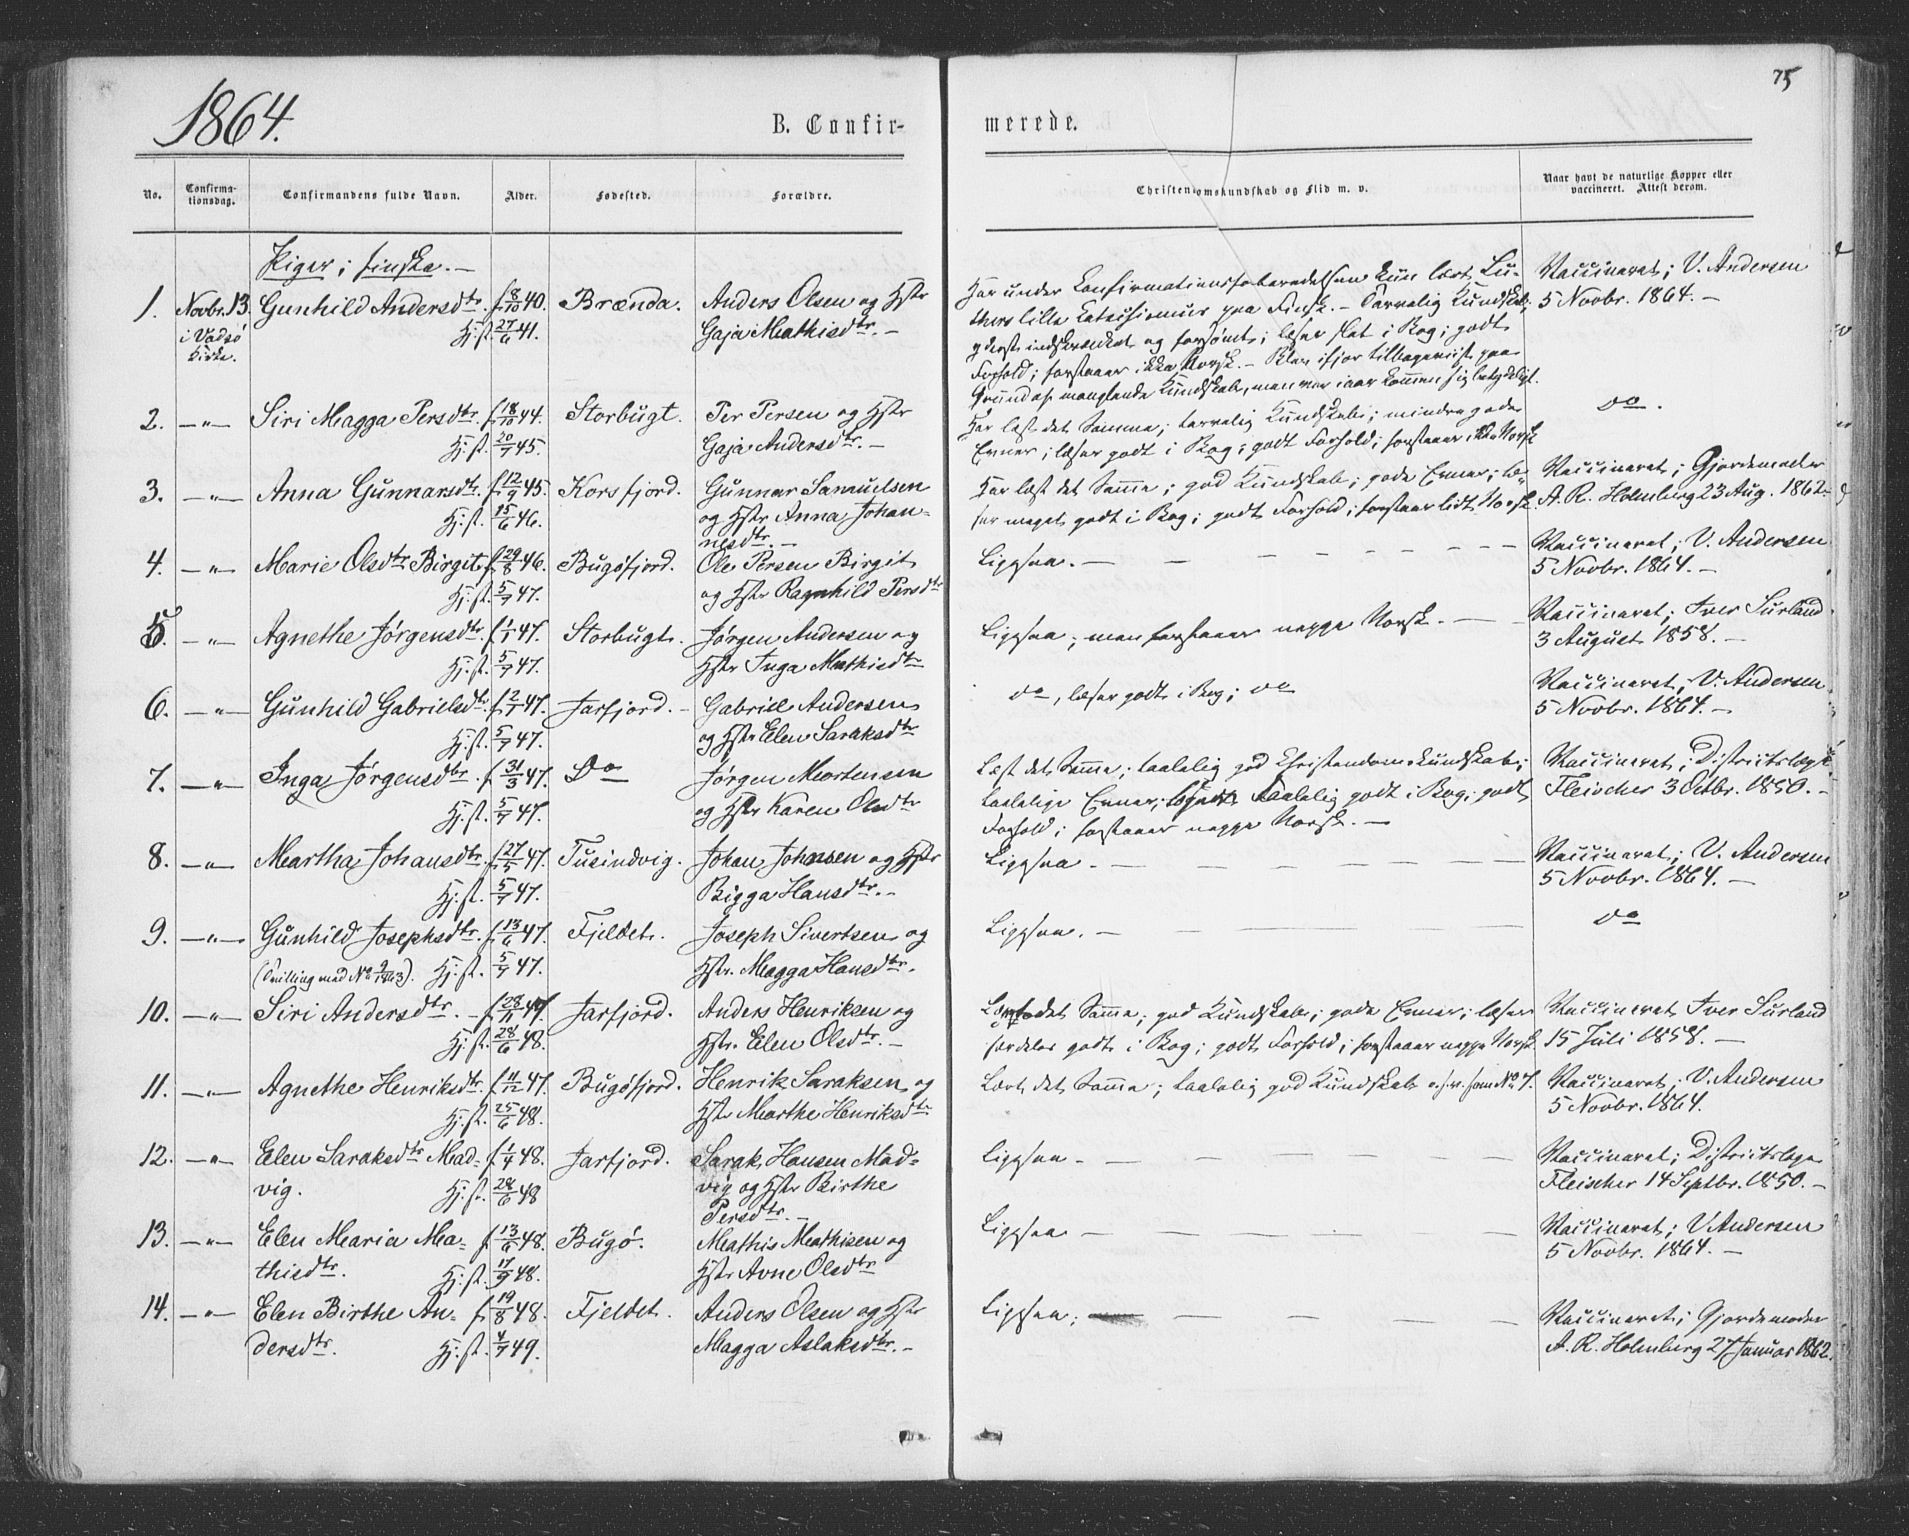 1864.
B. Confir-
merede.
75
No.
Confirma-
tionsdag.
Confirmandens fulde Navn.
Alder.
Fødested.
Forældre.
Christendomskundskab og Flid m. v.
Naar havt de naturlige Kopper eller
vaccineret. Attest derom.
Piger; finske. –
1. Novbr. 13 Gunhild Andersdtr. f. 8/10 40. Brænda. Anders Olsen og Hstr
i Vadsø Hj.f. 27/6 41. Gaja Mathisdtr. –
Kirke.
Har under Confirmationsforberedelsen kun lært Lu-
thers lille Katechismus paa Finsk. – Tarvelig Kundskab,
yderst indskrænket og forsømt; læser slet i Bog; godt
Forhold; forstaaer ikke Norsk. – Blev ifjor tilbageviist paa
Grund af manglende Kundskab, men var iaar kommen sig betydeligt.
Vaccineret; V. Andersen
5 Novbr. 1864. –
2. –„– Siri Magga Persdtr. f. 18/10 44. Storbugt. Per Persen og Hstr
Hj.f. 20/7 45. Gaja Andersdtr. –
Har læst det Samme; tarvelig Kundskab; mindre gode
Evner; læser godt i Bog; godt Forhold; forstaaer ikke Norsk
do.
3. –„– Anna Gunnarsdtr. f. 12/9 45. Korsfjord. Gunnar Samuelsen
Hj.f. 15/6 46. og Hstr Anna Johan-
nesdtr. –
Har læst det Samme; god Kundskab; gode Evner; læ-
ser meget godt i Bog; godt Forhold; forstaaer lidt Norsk.
Vaccineret; Gjordemoder
A. R. Holmberg 23 Aug. 1862.
4. –„– Marie Olsdtr Birgit f. 29/8 46. Bugøfjord. Ole Persen Birgit
Hj.f. 5/7 47. og Hstr Ragnhild Persdtr
Ligesaa. –
Vaccineret; V. Andersen
5 Novbr. 1864. –
5. –„– Agnethe Jørgensdtr. f. 1/1 47. Storbugt. Jørgen Andersen og
Hj.f. 5/7 47. Hstr Inga Mathisdtr
Ligesaa; men forstaaer neppe Norsk. –
Vaccineret; Iver Surland
3 August 1858. –
6. –„– Gunhild Gabrielsdtr. f. 2/1 47. Jarfjord. – Gabriel Andersen
Hj.f. 5/7 47. og Hstr Elen Saraksdtr
do, læser godt i Bog; do
Vaccineret, V. Andersen
5 Novbr. 1864. –
7. –„– Inga Jørgensdtr. f. 31/3 47. Do Jørgen Mortensen
Hj.f. 5/7 47. og Hstr Karen Olsdtr
Læst det Samme; taalelig god Christendomskundskab;
taalelige Evner; taalelig godt i Bog; godt
Forhold; forstaaer neppe Norsk. –
Vaccineret; Districtslæge
Fleischer 3 Octbr. 1850. –
8. –„– Martha Johansdtr. f. 27/5 47. Tusindvig. Johan Johnsen og Hstr
Hj.f. 5/7 47. Bigga Hansdtr. –
Ligesaa. –
Vaccineret; V. Andersen
5 Novbr. 1864. –
9. –„– Gunhild Josephsdtr. f. 13/6 47. Fjeldet. Joseph Sivertsen og
(Tvilling med No 9/1863). Hj.f. 5/7 47. Hstr. Magga Hansdtr.
Ligesaa. –
do
10. –„– Siri Andersdtr. – f. 28/11 47. Jarfjord. Anders Henriksen og
Hj.f. 28/6 48. Hstr. Elen Olsdtr. –
det Samme; god Kundskab; gode Evner; læser
særdeles godt i Bog; godt Forhold; forstaaer neppe Norsk
Vaccineret Iver Surland
15 Juli 1858. –
11. –„– Agnethe Henriksdtr. f. 11/12 47. Bugøfjord. Henrik Saraksen og
Hj.f. 25/6 48. Hstr Marthe Henriksdtr
Lært det Samme; taalelig god Kundskab o.s.v. som No 7.
Vaccineret; V. Andersen
5 Novbr. 1864.
12. –„– Elen Saraksdtr Mad- f. 1/4 48. Jarfjord. Sarak Hansen Mad-
vig. Hj.f. 28/6 48 vig og Hstr Birthe
Persdtr. –
Ligesaa –
Vaccineret; Districtslæge
Fleischer 14 Septbr. 1850. –
13. –„– Elen Maria Ma- f. 13/6 48. Bugø. Mathis Mathisen og
thisdtr. Hj.f. 17/9 48. Hstr Avne Olsdtr
Ligesaa –
Vaccineret; V. Andersen
5 Novbr. 1864. –
14. –„– Elen Birthe An- f. 19/8 48. Fjeldet. Anders Olsen og Hstr
dersdtr. Hj.f. 4/7 49. Magga Aslaksdtr. –
Ligesaa;
Vaccineret; Gjordemoder
A. R. Holmberg 27 Januar 1862.